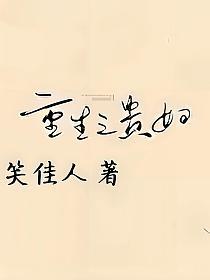 重生之贵妇
笑佳人 著